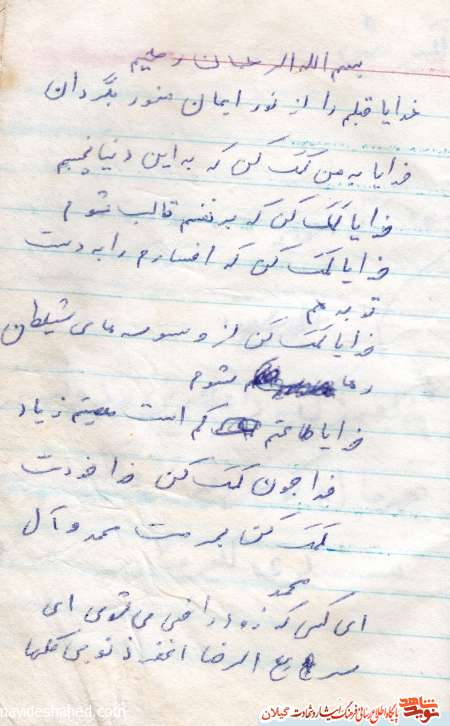 بسم الله الرحمان رحیم
خدایا قبلم را از نور ایمان منور بگردان
خدایا به من کمک کن که به این دنیا نچسبم
خدایا کمک کن که بر نفسم قالب شوم
خدایا کمک کن که افسارم را به دست
تو بدهم
خدایا کمک کن از وسوسه های شیطان
رها شوم
خدایا طاعتم کم است معصیتم زیاد
خدا جون کمک کن خدا خودت
کمک کن بحرمت محمد و آل
محمد
ای کسی که زود راضی می شوی ای
سریع الرضا اغفر ذنوبی کلها
navideshahed.com
نوید شاهد
پایگاه اطلاع رسانی فرهنگ ایثار و شهادت گیلان